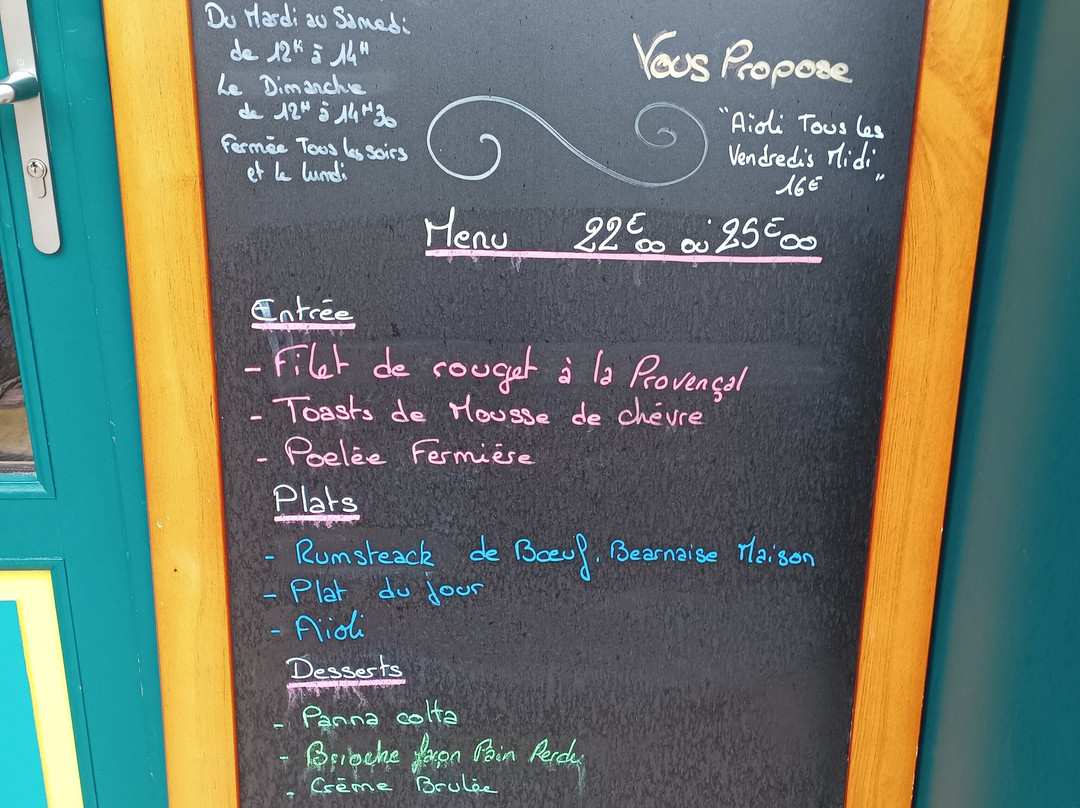 Du Mardi au Samedi
de 12H à 14H
Le Dimanche
de 12H à 14H30
Fermée Tous les soirs
et le lundi
Vous Propose
"Aïoli Tous les
Vendredis Midi"
16€
Menu 22€00 ou 25€00
Entrée
- Filet de rouget à la Provençal
- Toasts de Mousse de chévre
- Poelée Fermiére
Plats
- Rumsteack de Bœuf. Bearnaise Maison
- Plat du jour
- Aïoli
Desserts
- Panna cotta
- Brioche façon Pain Perdu
- Crème Brulée